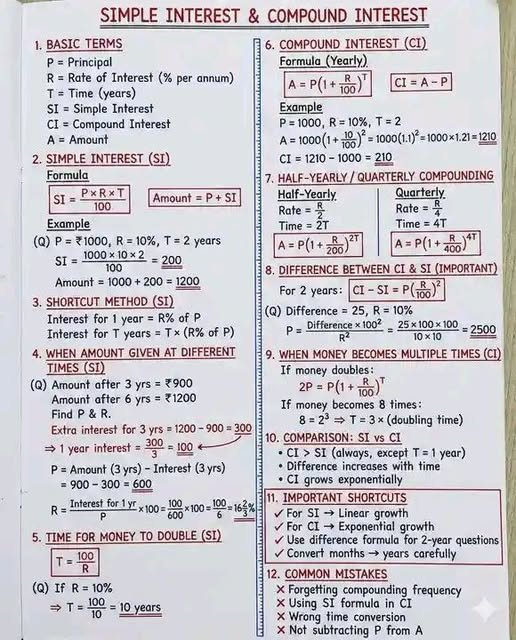 SIMPLE INTEREST & COMPOUND INTEREST
1. BASIC TERMS
P = Principal
R = Rate of Interest (% per annum)
T = Time (years)
SI = Simple Interest
CI = Compound Interest
A = Amount
2. SIMPLE INTEREST (SI)
Formula
SI = P×R×T/100
Amount = P + SI
Example
(Q) P = ₹1000, R = 10%, T = 2 years
SI = 1000×10×2/100 = 200
Amount = 1000 + 200 = 1200
3. SHORTCUT METHOD (SI)
Interest for 1 year = R% of P
Interest for T years = T × (R% of P)
4. WHEN AMOUNT GIVEN AT DIFFERENT
TIMES (SI)
(Q) Amount after 3 yrs = ₹900
Amount after 6 yrs = ₹1200
Find P & R.
Extra interest for 3 yrs = 1200 - 900 = 300
⇒ 1 year interest = 300/3 = 100
P = Amount (3 yrs) - Interest (3 yrs)
= 900 - 300 = 600
R = Interest for 1 yr/P × 100 = 100/600 × 100 = 100/6 = 16 2/3 %
5. TIME FOR MONEY TO DOUBLE (SI)
T = 100/R
(Q) If R = 10%
⇒ T = 100/10 = 10 years
6. COMPOUND INTEREST (CI)
Formula (Yearly)
A = P(1 + R/100)^T
CI = A - P
Example
P = 1000, R = 10%, T = 2
A = 1000(1 + 10/100)² = 1000(1.1)² = 1000×1.21 = 1210
CI = 1210 - 1000 = 210
7. HALF-YEARLY / QUARTERLY COMPOUNDING
Half-Yearly
Rate = R/2
Time = 2T
A = P(1 + R/200)^2T
Quarterly
Rate = R/4
Time = 4T
A = P(1 + R/400)^4T
8. DIFFERENCE BETWEEN CI & SI (IMPORTANT)
For 2 years: CI - SI = P(R/100)²
(Q) Difference = 25, R = 10%
P = Difference × 100²/R² = 25×100×100/10×10 = 2500
9. WHEN MONEY BECOMES MULTIPLE TIMES (CI)
If money doubles:
2P = P(1 + R/100)^T
If money becomes 8 times:
8 = 2³ ⇒ T = 3 × (doubling time)
10. COMPARISON: SI vs CI
• CI > SI (always, except T = 1 year)
• Difference increases with time
• CI grows exponentially
11. IMPORTANT SHORTCUTS
✓ For SI → Linear growth
✓ For CI → Exponential growth
✓ Use difference formula for 2-year questions
✓ Convert months → years carefully
12. COMMON MISTAKES
× Forgetting compounding frequency
× Using SI formula in CI
× Wrong time conversion
× Not subtracting P from A